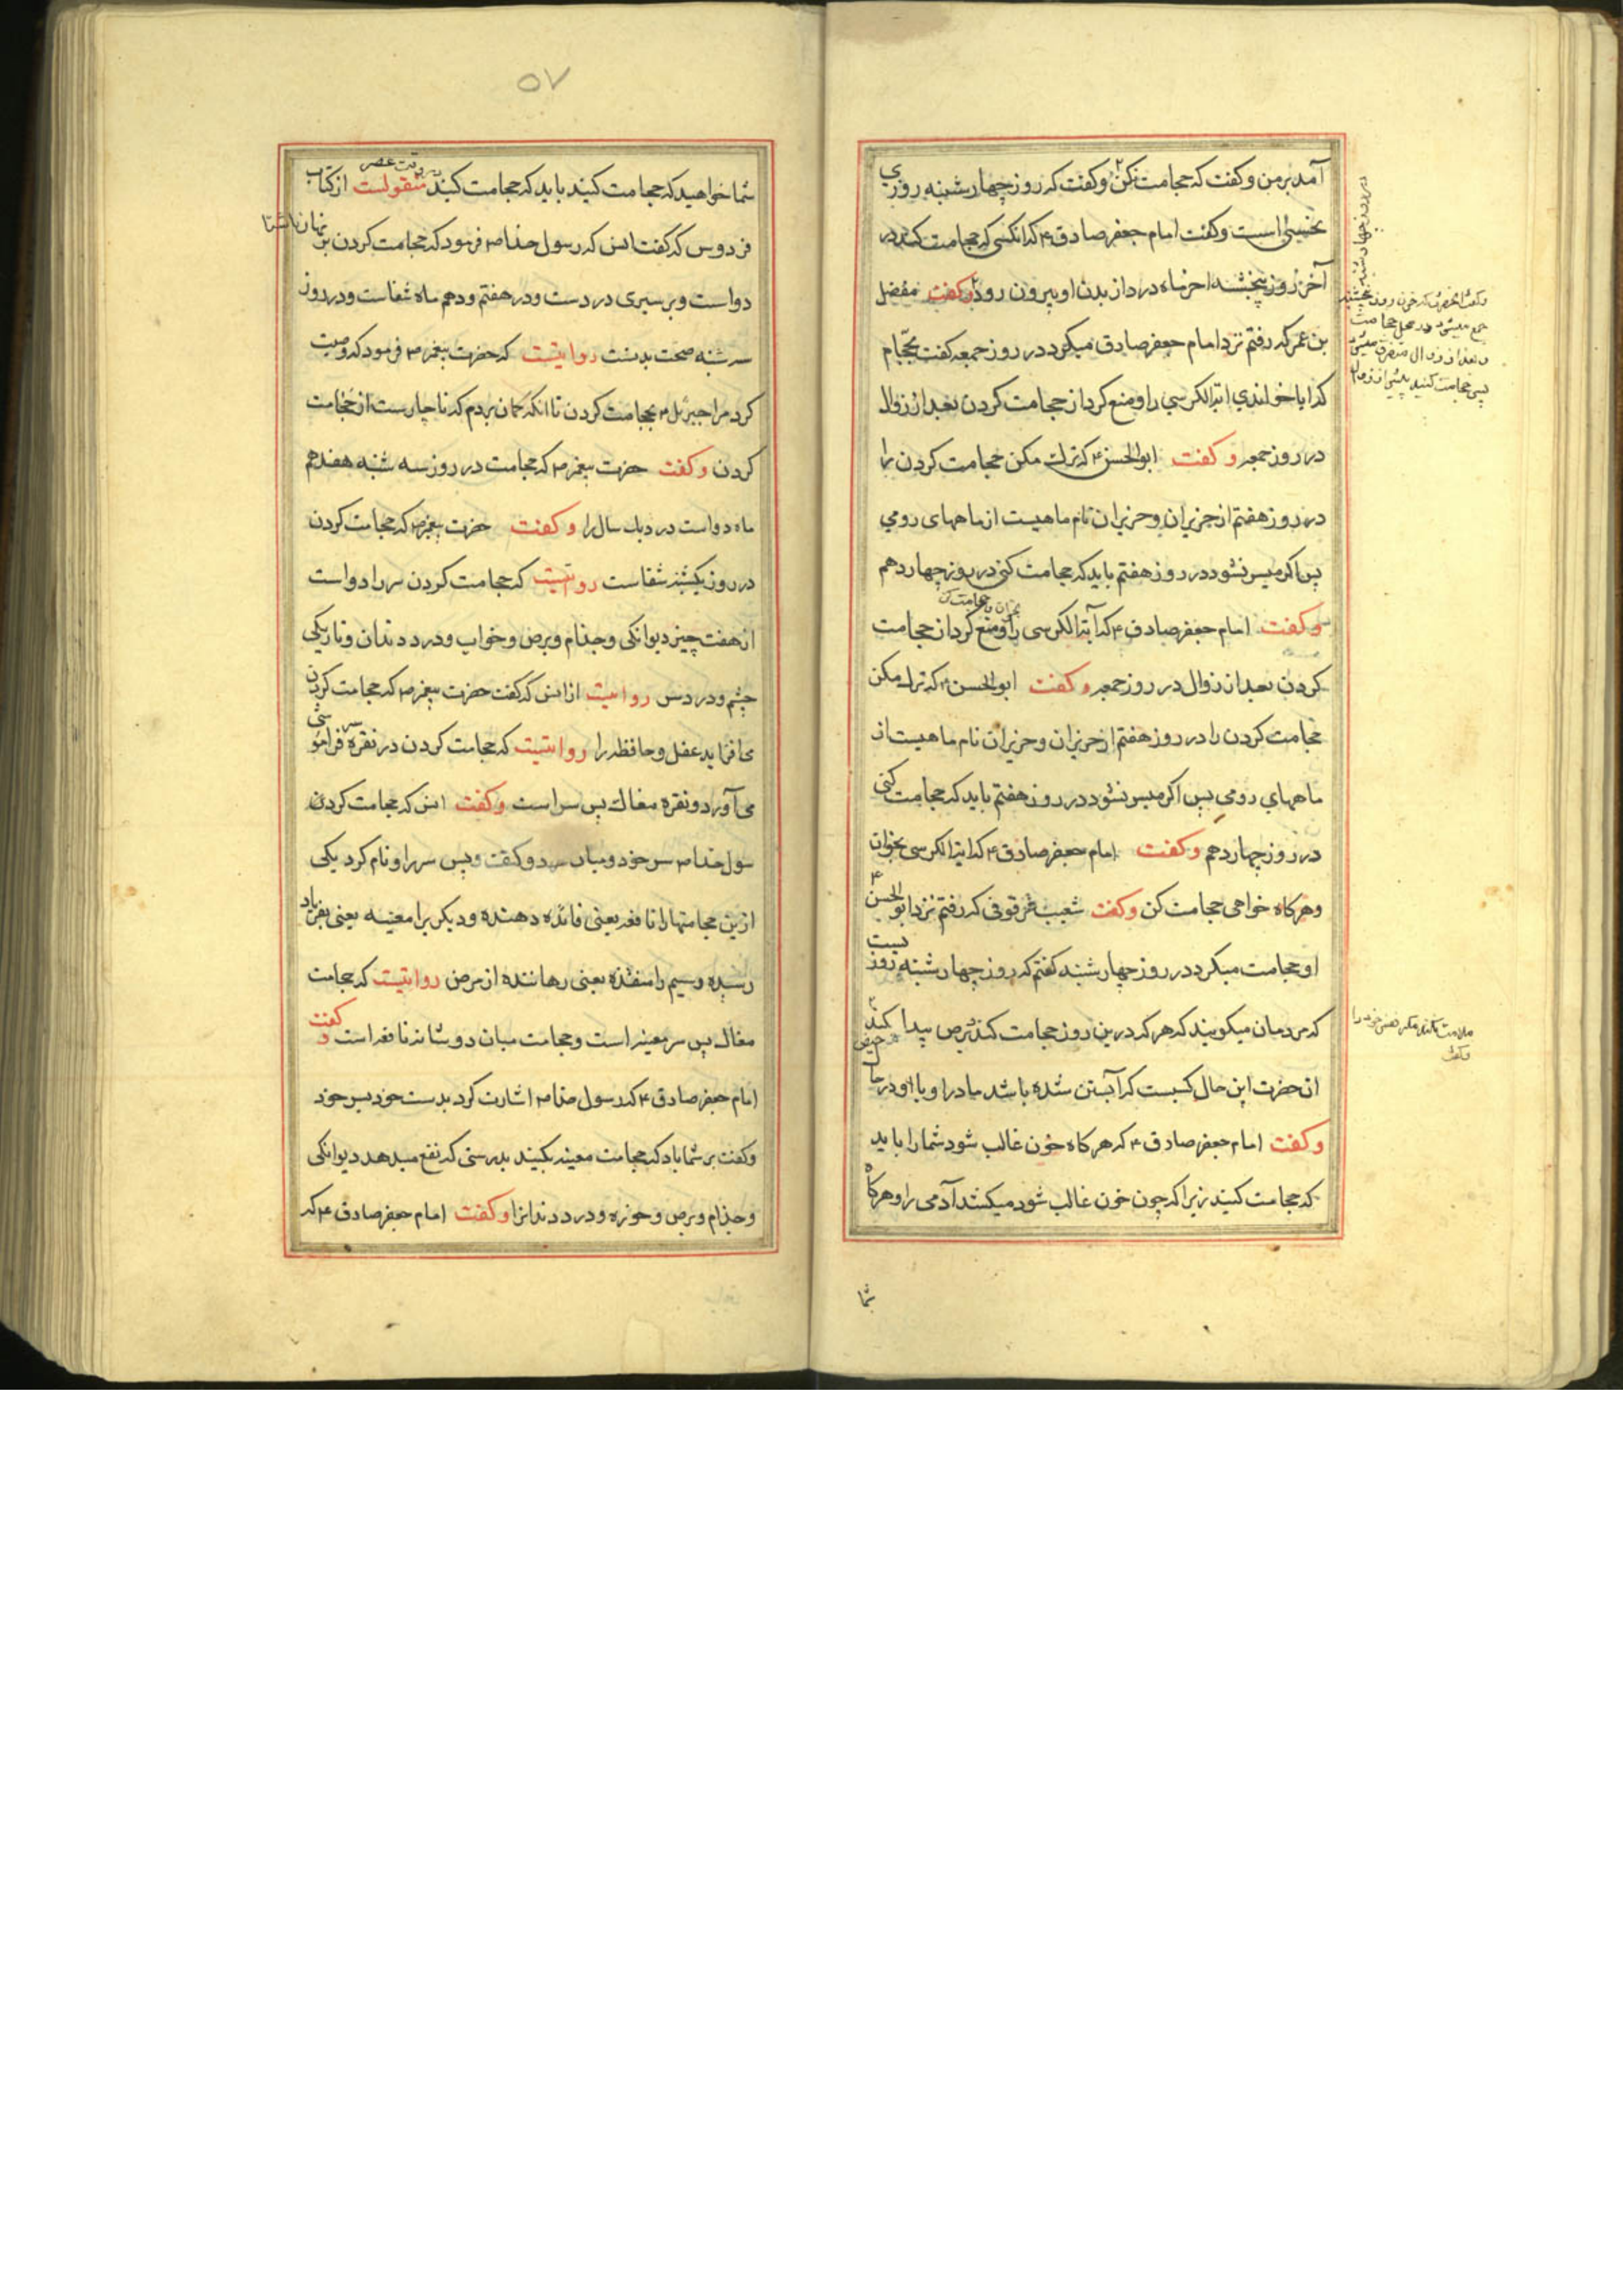 آمد بر من و کفت که حجامت مکن و کفت که روز چهارشنبه روزی
نحسی است و کفت امام جعفر صادق ۴ که انکسی که حجامت کند در
آخر روز پنجشنبه اخر ماه درد از بدن او بیرون رود و کفت مفضل
بن عمر که رفتم نزد امام جعفر صادق میکرد در روز جمعه کفت بحجام
که ایا خواندی ایة الکرسی را و منع کرد از حجامت کردن بعد از زوال
در روز جمعه و کفت ابو الحسن ۴ که ترک مکن حجامت کردن را
در روز هفتم از حزیران و حزیران نام ماهیست از ماههای رومی
پس اکر میسر نشود در روز هفتم باید که حجامت کنی در روز چهاردهم
و کفت امام جعفر صادق ۴ که آیة الکرسی را و منع کرد از حجامت
بخوان و حجامت کن
کردن بعد از زوال در روز جمعه و کفت ابو الحسن ۴ که ترک مکن
حجامت کردن را در روز هفتم از حزیران و حزیران نام ماهیست از
ماههای رومی پس اکر میسر نشود در روز هفتم باید که حجامت کنی
در روز چهاردهم و کفت امام جعفر صادق ۴ که ایة الکرسی بخوان
و هرکاه خواهی حجامت کن و کفت شعیب عرقوفی که رفتم نزد ابو الحسن ۴
او حجامت میکرد در روز چهارشنبه کفتم که روز چهارشنبه روز نیست
که مردمان میکویند که هر که درین روز حجامت کند برص پیدا کند
ان حضرت این حال کسیست که آبستن شده باشد مادر او با او در حال حیض
و کفت امام جعفر صادق ۴ که هر کاه خون غالب شود شما را باید
که حجامت کنید زیرا که چون خون غالب شود میکشد آدمی را و هرکاه
شما
در روز چهارشنبه
و کفت انحضرت که خون روز پنجشنبه
جمع میشود در محل حجامت
و بعد از زوال متفرق میشود
پس حجامت کنید پیش از زوال
ملامت نکند مکر نفس خود را
و کفت
۵۷
شما خواهید که حجامت کنید باید که حجامت کنید در وقت عصر منقولست از کتاب
فردوس که کفت انس که رسول خدا ص فرمود که حجامت کردن بر نهار ناشتا
دواست و بر سیری دردست و در هفتم و دهم ماه شفاست و در روز
سه شنبه صحت بدنست روایتیست که حضرت پیغمبر ص فرمود که وصیت
کرد مرا جبرئیل ۴ بحجامت کردن تا انکه کمان بردم که ناچارست از حجامت
کردن و کفت حضرت پیغمبر ص که حجامت در روز سه شنبه هفدهم
ماه دواست درد یک سال را و کفت حضرت پیغمبر ص که حجامت کردن
در روز یکشنبه شفاست روایتیست که حجامت کردن سر را دواست
از هفت چیز دیوانکی و جذام و برص و خواب و درد دندان و تاریکی
چشم و درد سر روایتیست از انس که کفت حضرت پیغمبر ص که حجامت کردن
می افزاید عقل و حافظه را روایتیست که حجامت کردن در نقره سر فراموشی
می آورد و نقره مغاک پس سر است و کفت انس که حجامت کردن
سول خدا ص سر خود و میان دو کتف و پس سر را و نام کرد یکی
ازین حجامتها را نافعه یعنی فائده دهنده و دیکری را مغیثه یعنی بفریاد
رسیده و سیم را منقذه یعنی رهاننده از مرض روایتیست که حجامت
مغاک پس سر مغیثه است و حجامت میان دو شانه نافعه است و کفت
امام جعفر صادق ۴ که رسول خدا ص اشارت کرد بدست خود بسر خود
و کفت بر شما باد که حجامت مغیثه بکنید بدرستی که نفع میدهد دیوانکی
و جذام و برص و خوره و درد دندانرا و کفت امام جعفر صادق ۴ که